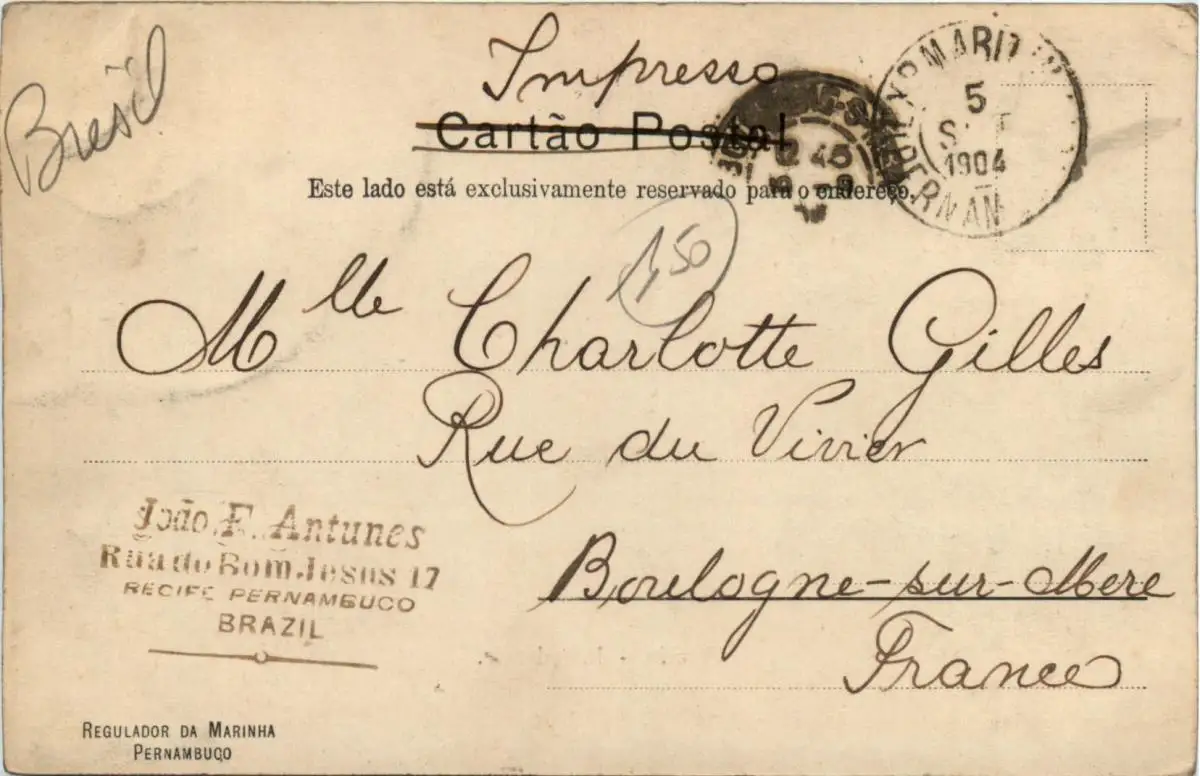 Bresil
Impresso
Cartão Postal
Este lado está exclusivamente reservado para o endereço.
5
1904
PERNAM
1,50
Mlle Charlotte Gilles
Rue du Vivier
Boulogne-sur-Mere
France
João F. Antunes
Rua do Bom Jesus 17
RECIFE PERNAMBUCO
BRAZIL
REGULADOR DA MARINHA
PERNAMBUCO